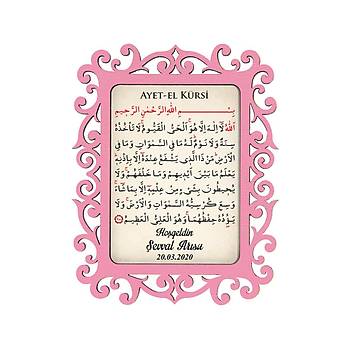 AYET-EL KÜRSİ
بِسْــــــمِ اللّٰهِ الرَّحْمٰنِ الرَّحِيمِ
اَللّٰهُ لَٓا اِلٰهَ اِلَّا هُوَ اَلْحَيُّ الْقَيُّومُ لَا تَأْخُذُهُ
سِنَةٌ وَلَا نَوْمٌ لَهُ مَا فِي السَّمٰوَاتِ وَمَا فِي
الْاَرْضِ مَنْ ذَا الَّذِي يَشْفَعُ عِنْدَهُٓ اِلَّا بِاِذْنِهِ
يَعْلَمُ مَا بَيْنَ اَيْدِيهِمْ وَمَا خَلْفَهُمْ وَلَا
يُحِيطُونَ بِشَيْءٍ مِنْ عِلْمِهِٓ اِلَّا بِمَا شَٓاءَ
وَسِعَ كُرْسِيُّهُ السَّمٰوَاتِ وَالْاَرْضَ وَلَا
يَؤُدُهُ حِفْظُهُمَا وَهُوَ الْعَلِيُّ الْعَظِيمُ
Hoşgeldin
Şevval Arısu
20.03.2020